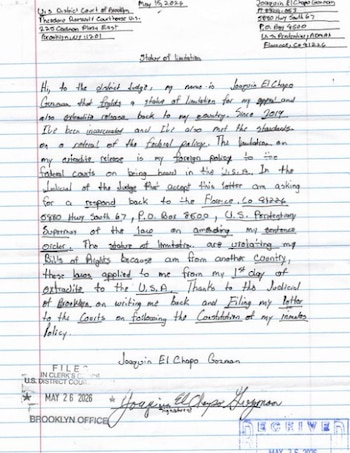 May 15, 2026
U.S. District Court of Brooklyn
Theodore Roosevelt Courthouse U.S.
225 Cadman Plaza East
Brooklyn, NY 11201
Joaquin El Chapo Guzman
5880 Hwy South 67
P.O. Box 8500
U.S. Penitentiary Admax
Florence, Co 81226
Statue of limitation
Hi, to the district Judge, my name is Joaquin El Chapo
Guzman that fights a statue of limitation for my appeal and
also extradite release back to my country. Since 2019
I've been incarcerated and I've also met the standards
on a retreat of the federal policy. The limitation on
my extradite release is my foreign policy to the
federal courts on being held in the U.S.A. In the
Judicial of the Judge that accept this letter am asking
for a respond back to the Florence, Co 81226
5880 Hwy South 67, P.O. Box 8500, U.S. Penitentiary
Supermax of the law on amending my sentence
order. The statue of limitation are violating my
Bills of Rights because am from another Country,
these laws applied to me from my 1st day of
extradite to the U.S.A. Thanks to the Judicial
of Brooklyn on writing me back and Filing my letter
to the Courts on following the Constitution of my inmates
Policy.
Joaquin El Chapo Guzman
FILED
IN CLERK'S
U.S. DISTRICT COU
★ MAY 26 2026 ★
BROOKLYN OFFICE
Joaquin El Chapo Guzman
Signature
RECEIVED
MAY 26 2026